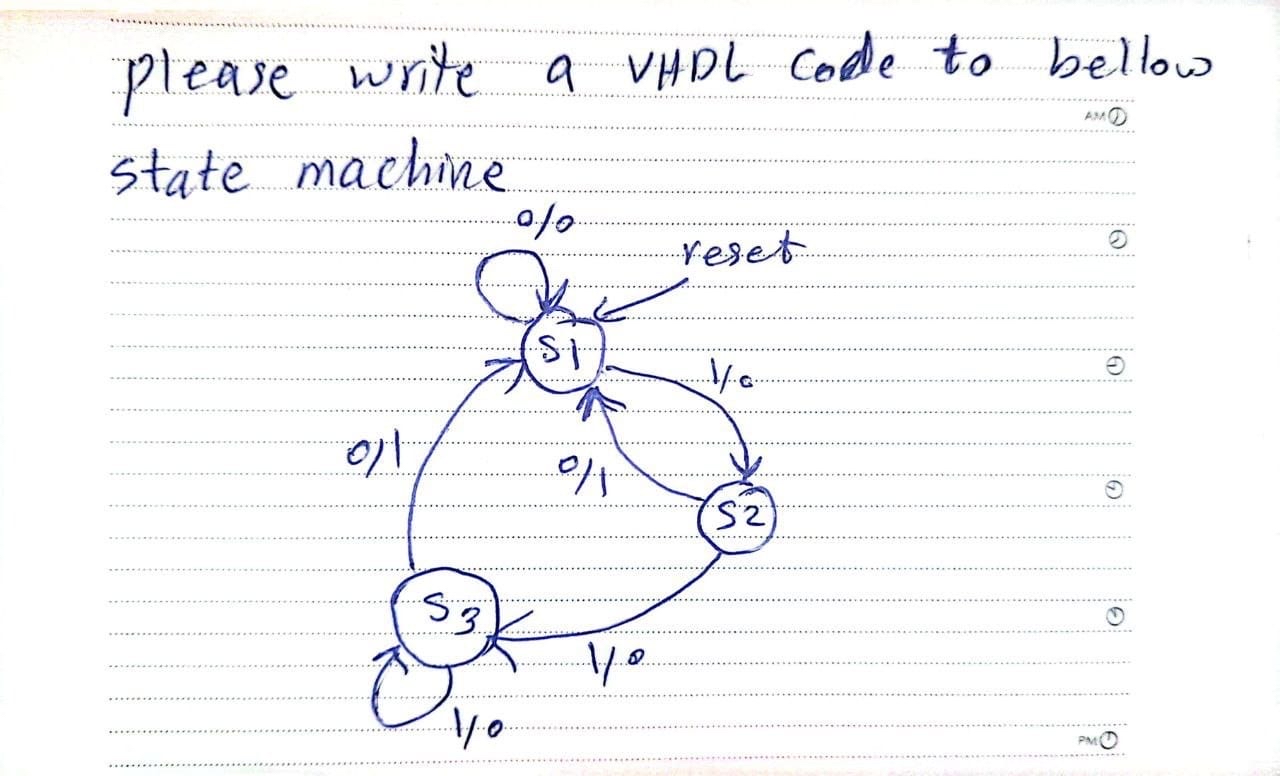 please write a VHDL code to bellow
AM
state machine
0/0
reset
S1
1/0
0/1
0/1
S2
S3
1/0
1/0
PM